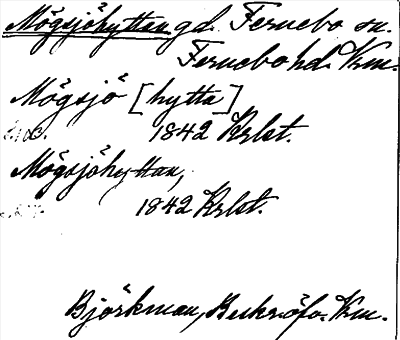 Mögsjöhyttan gd. Fernebo sn.
Fernebo hd. Vrm.
Mögsjö [hytta]
1842 Krlst.
Mögsjöhyttan,
1842 Krlst.
Björkman, Beskr. öfv. Vrm.